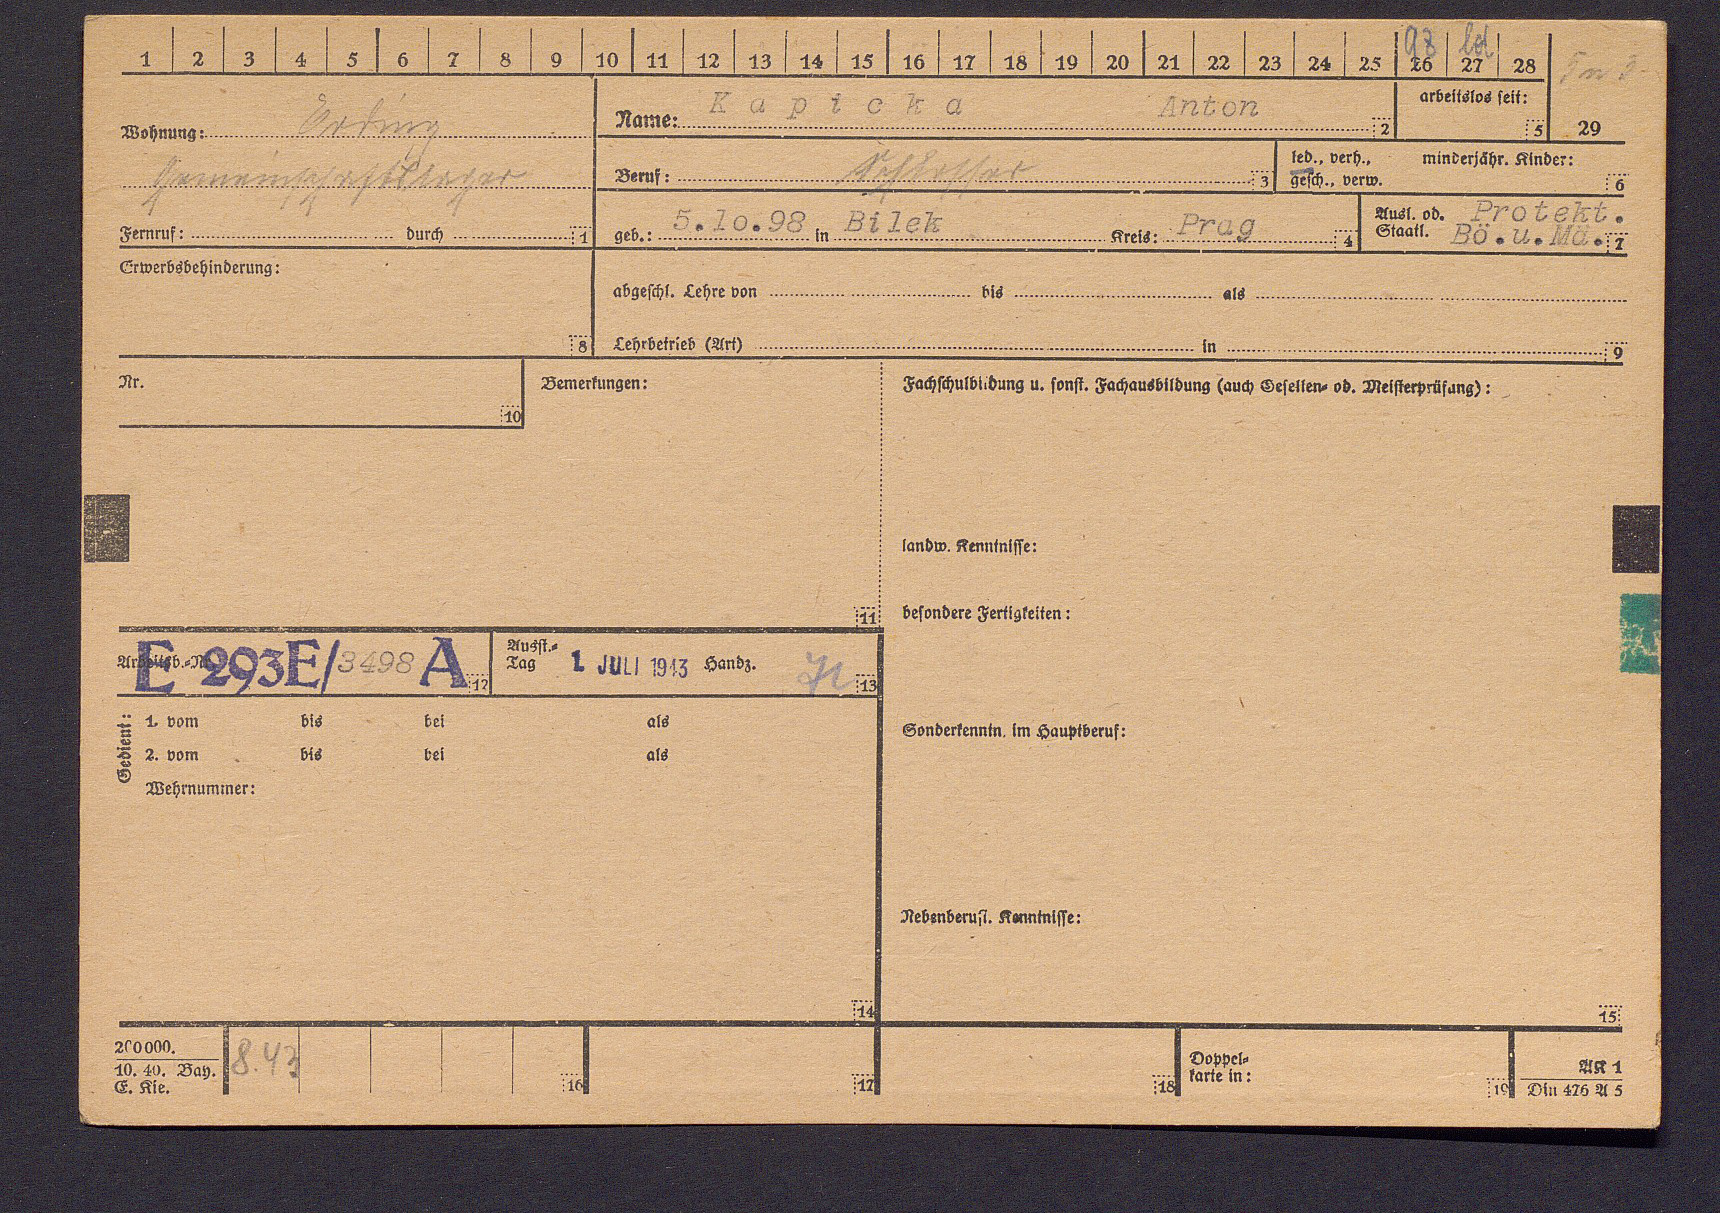 1 2 3 4 5 6 7 8 9 10 11 12 13 14 15 16 17 18 19 20 21 22 23 24 25 26 27 28
98 led
Wohnung: Erding
Gemeinschaftslager
Fernruf: durch 1
Name: Kapicka Anton 2
arbeitslos seit: 5
29
Beruf: Schlosser 3
led., verh., gesch., verw.
minderjähr. Kinder: 6
geb.: 5.10.98 in Bilek Kreis: Prag 4
Ausl. od. Staatl. Protekt. Bö.u.Mä. 7
Erwerbsbehinderung: 8
abgeschl. Lehre von bis als
Lehrbetrieb (Art) in 9
Nr. 10
Bemerkungen: 11
Fachschulbildung u. sonst. Fachausbildung (auch Gesellen- od. Meisterprüfung):
landw. Kenntnisse:
besondere Fertigkeiten:
Arbeitsb.-Nr. E 293E/3498 A 12
Ausst.-Tag 1. JULI 1943 Handz. 13
Gedient:
1. vom bis bei als
2. vom bis bei als
Wehrnummer:
14
Sonderkenntn. im Hauptberuf:
Nebenberufl. Kenntnisse:
15
200000.
10. 40. Bay.
E. Kie.
8.43
16
17
18
Doppel-
karte in: 19
AK 1
Din 476 A 5